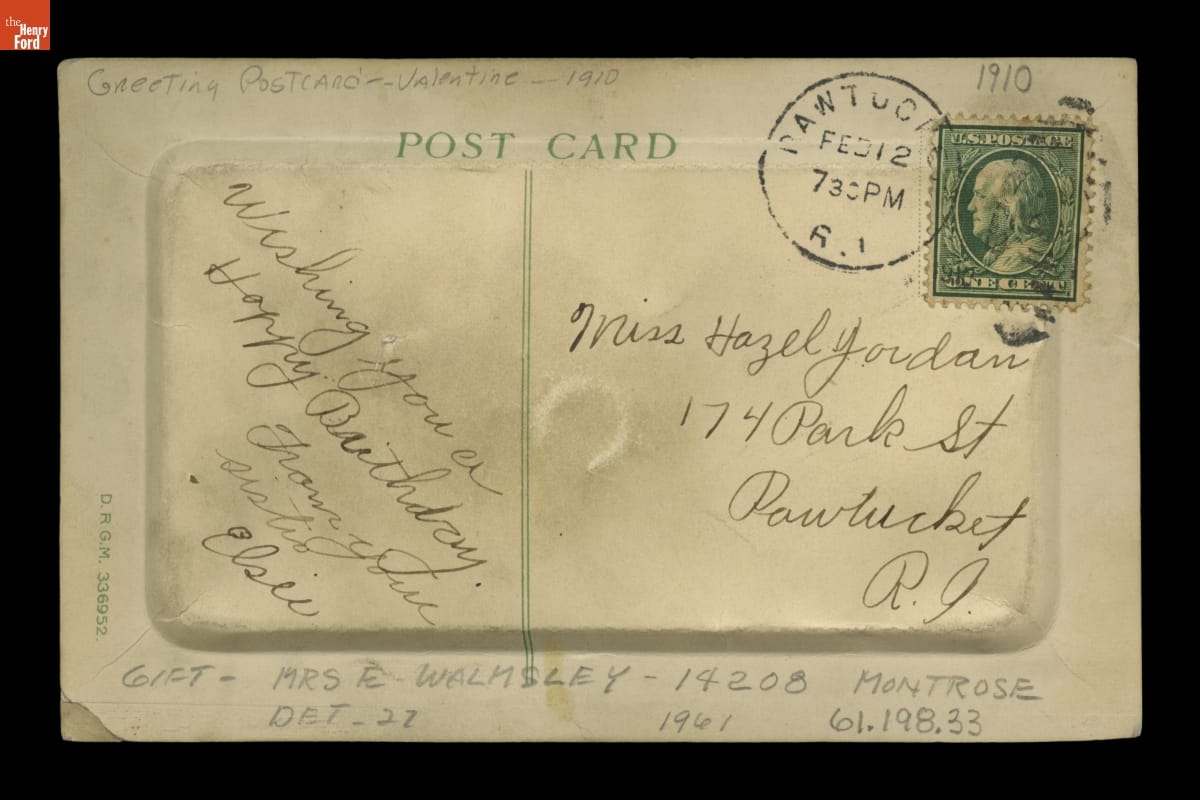 the
Henry
Ford
Greeting Postcard -- Valentine - 1910
1910
POST CARD
PAWTUC
FEB 12
730PM
R.I.
U.S. POSTAGE
ONE CENT
Wishing you a
Happy Birthday.
From your
sister
Elsie
Miss Hazel Jordan
174 Park St
Pawtucket
R.I.
D.R.G.M. 336952.
GIFT - MRS E - WALMSLEY - 14208 MONTROSE
DET - 27 1961 61.198.33